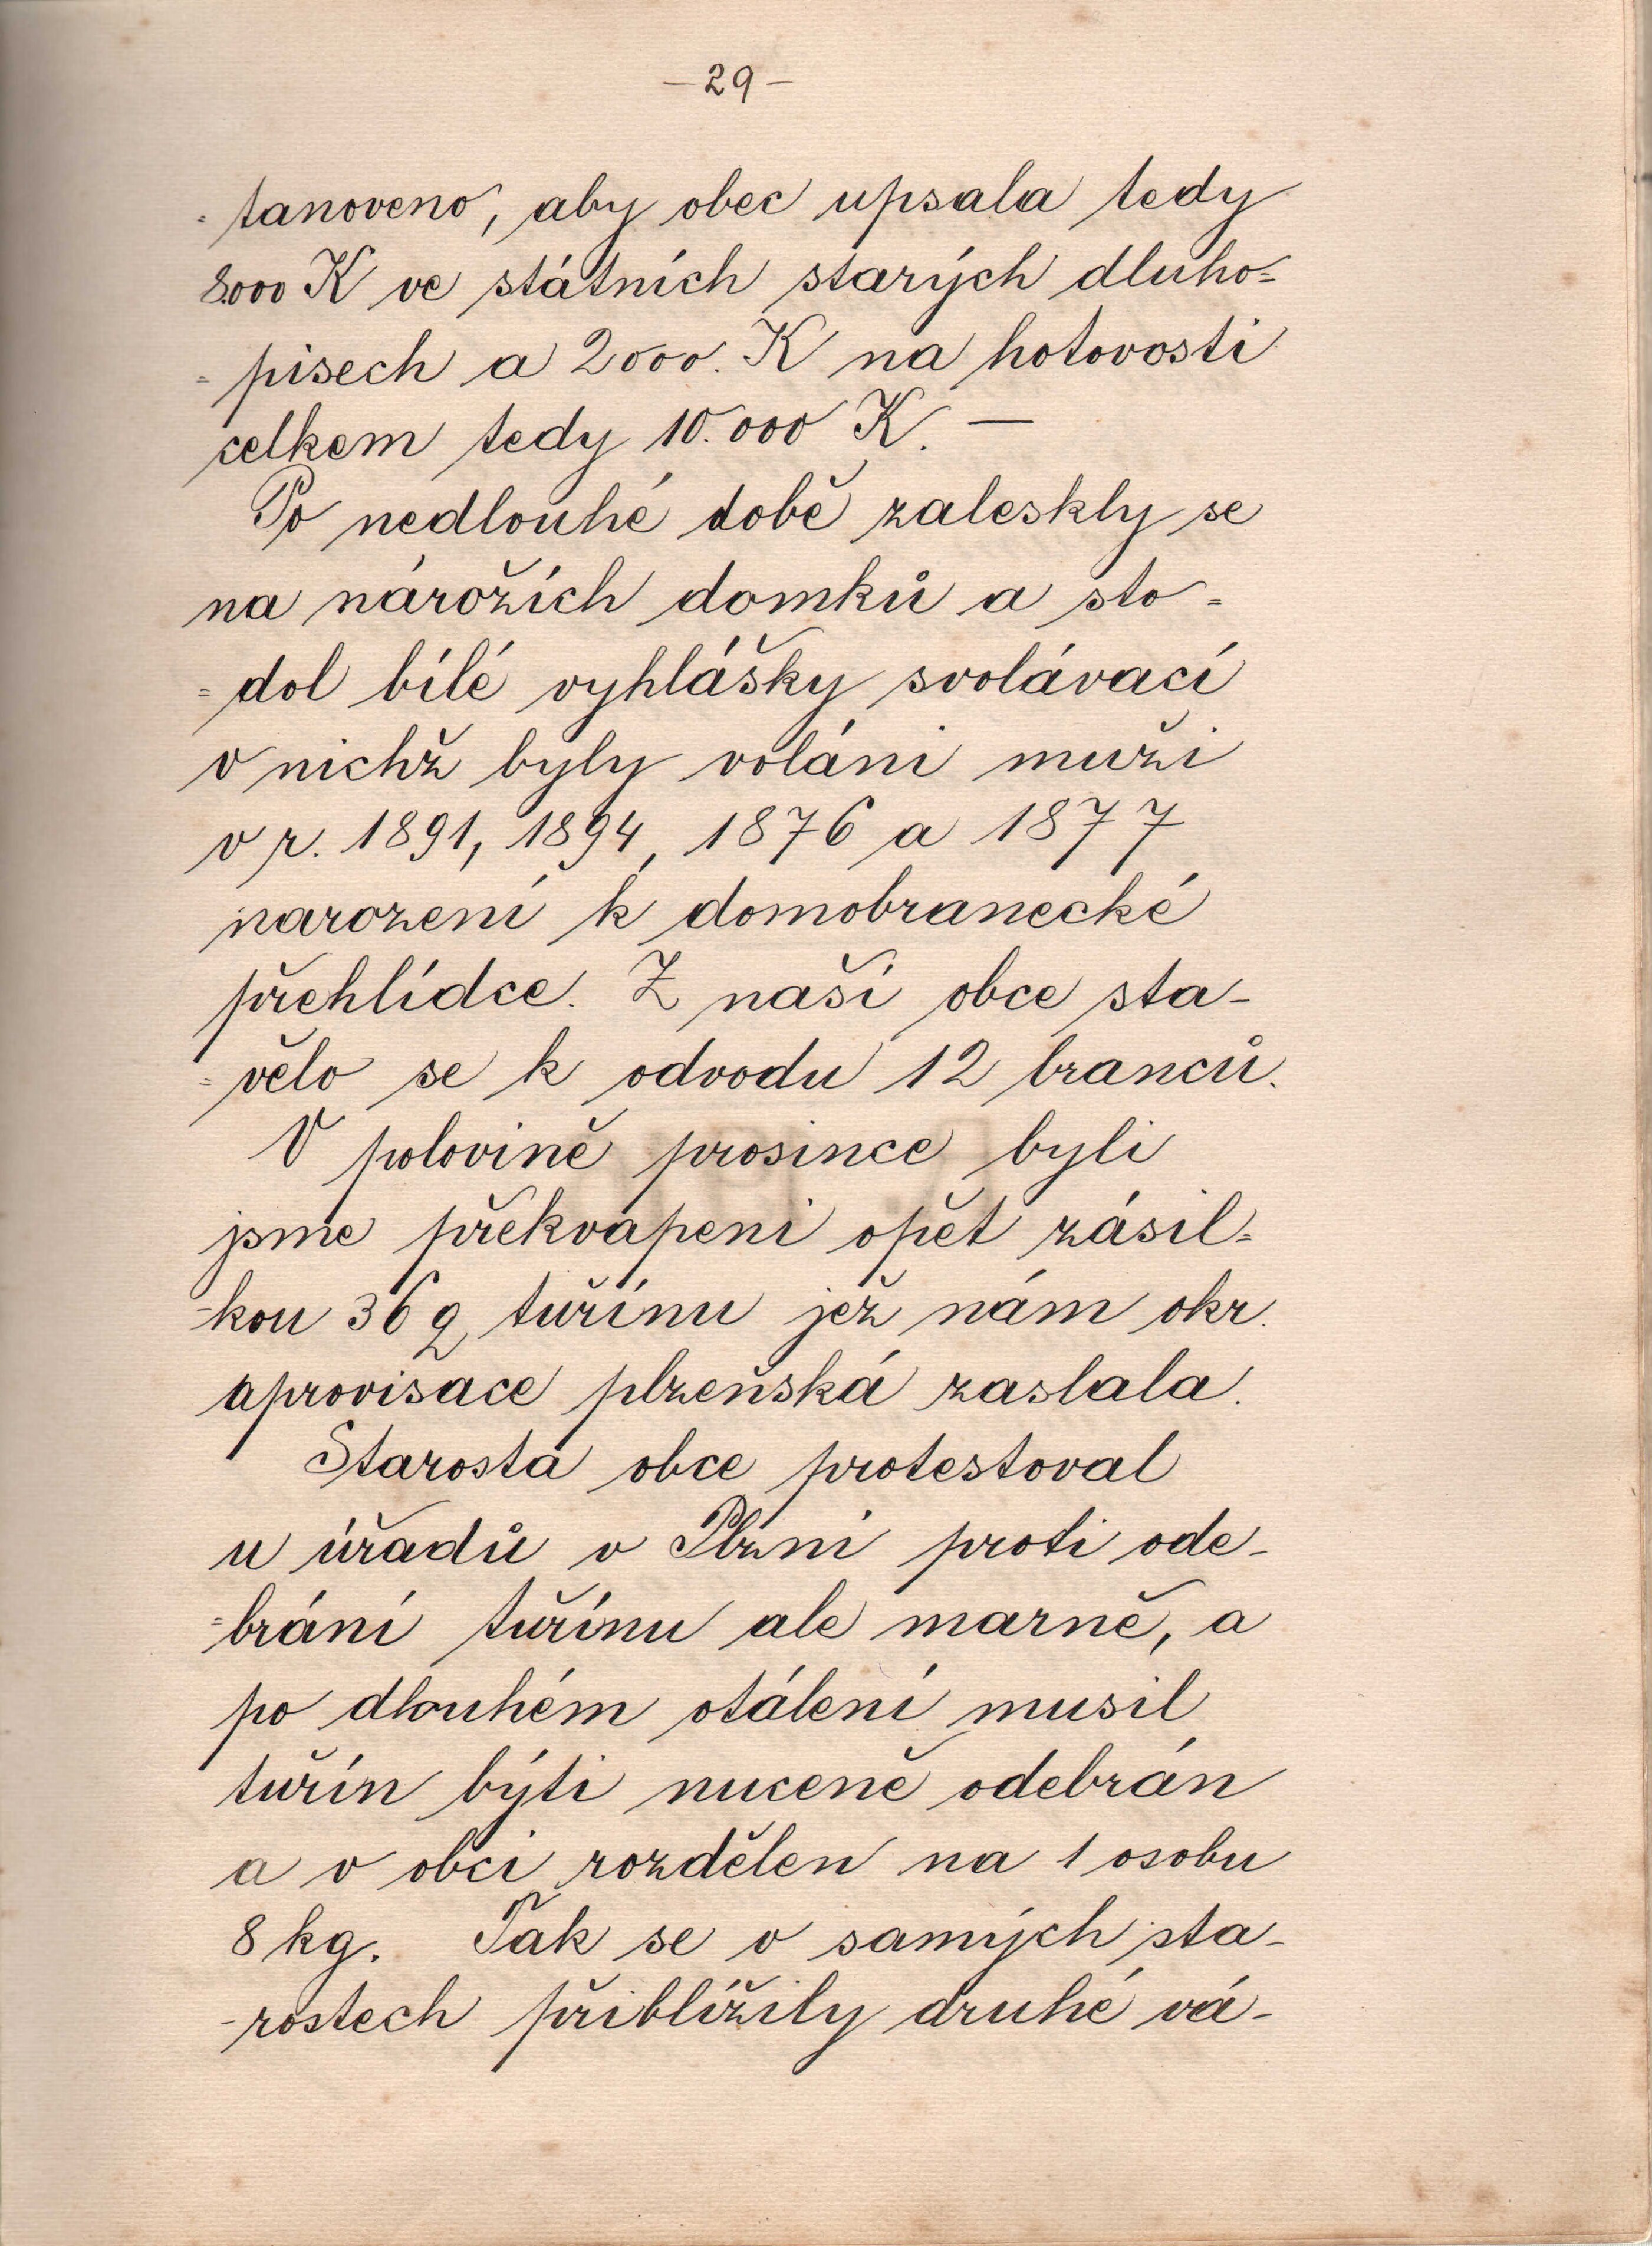 – 29 –
-tanoveno, aby obec upsala tedy
8000 K ve státních starých dluho=
=pisech a 2000. K na hotovosti
celkem tedy 10.000 K. —
Po nedlouhé době zaleskly se
na nárožích domků a sto=
=dol bílé vyhlášky svolávací
v nichž byly voláni muži
v r. 1891, 1894, 1876 a 1877
narození k domobranecké
přehlídce. Z naší obce sta-
=vělo se k odvodu 12 branců.
V polovině prosince byli
jsme překvapeni opět zásil=
-kou 36 q tuřínu jež nám okr.
aprovisace plzeňská zaslala.
Starosta obce protestoval
u úřadů v Plzni proti ode-
=brání tuřínu ale marně, a
po dlouhém otálení musil
tuřín býti nuceně odebrán
a v obci rozdělen na 1 osobu
8 kg. Tak se v samých sta-
-rostech přiblížily druhé vá-